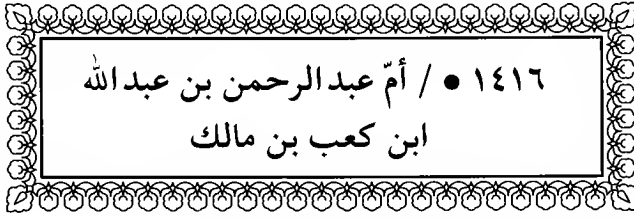 ١٤١٦ ● / أمّ عبد الرحمن بن عبد الله
ابن كعب بن مالك